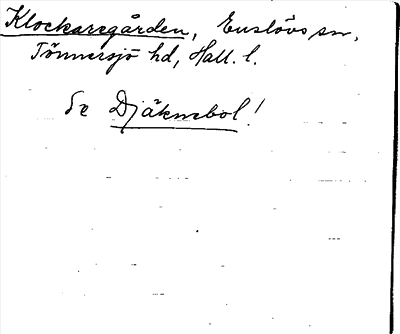 Klockaregården, Enslövs sn,
Tönnersjö hd, Hall. l.
Se Djäknebol!